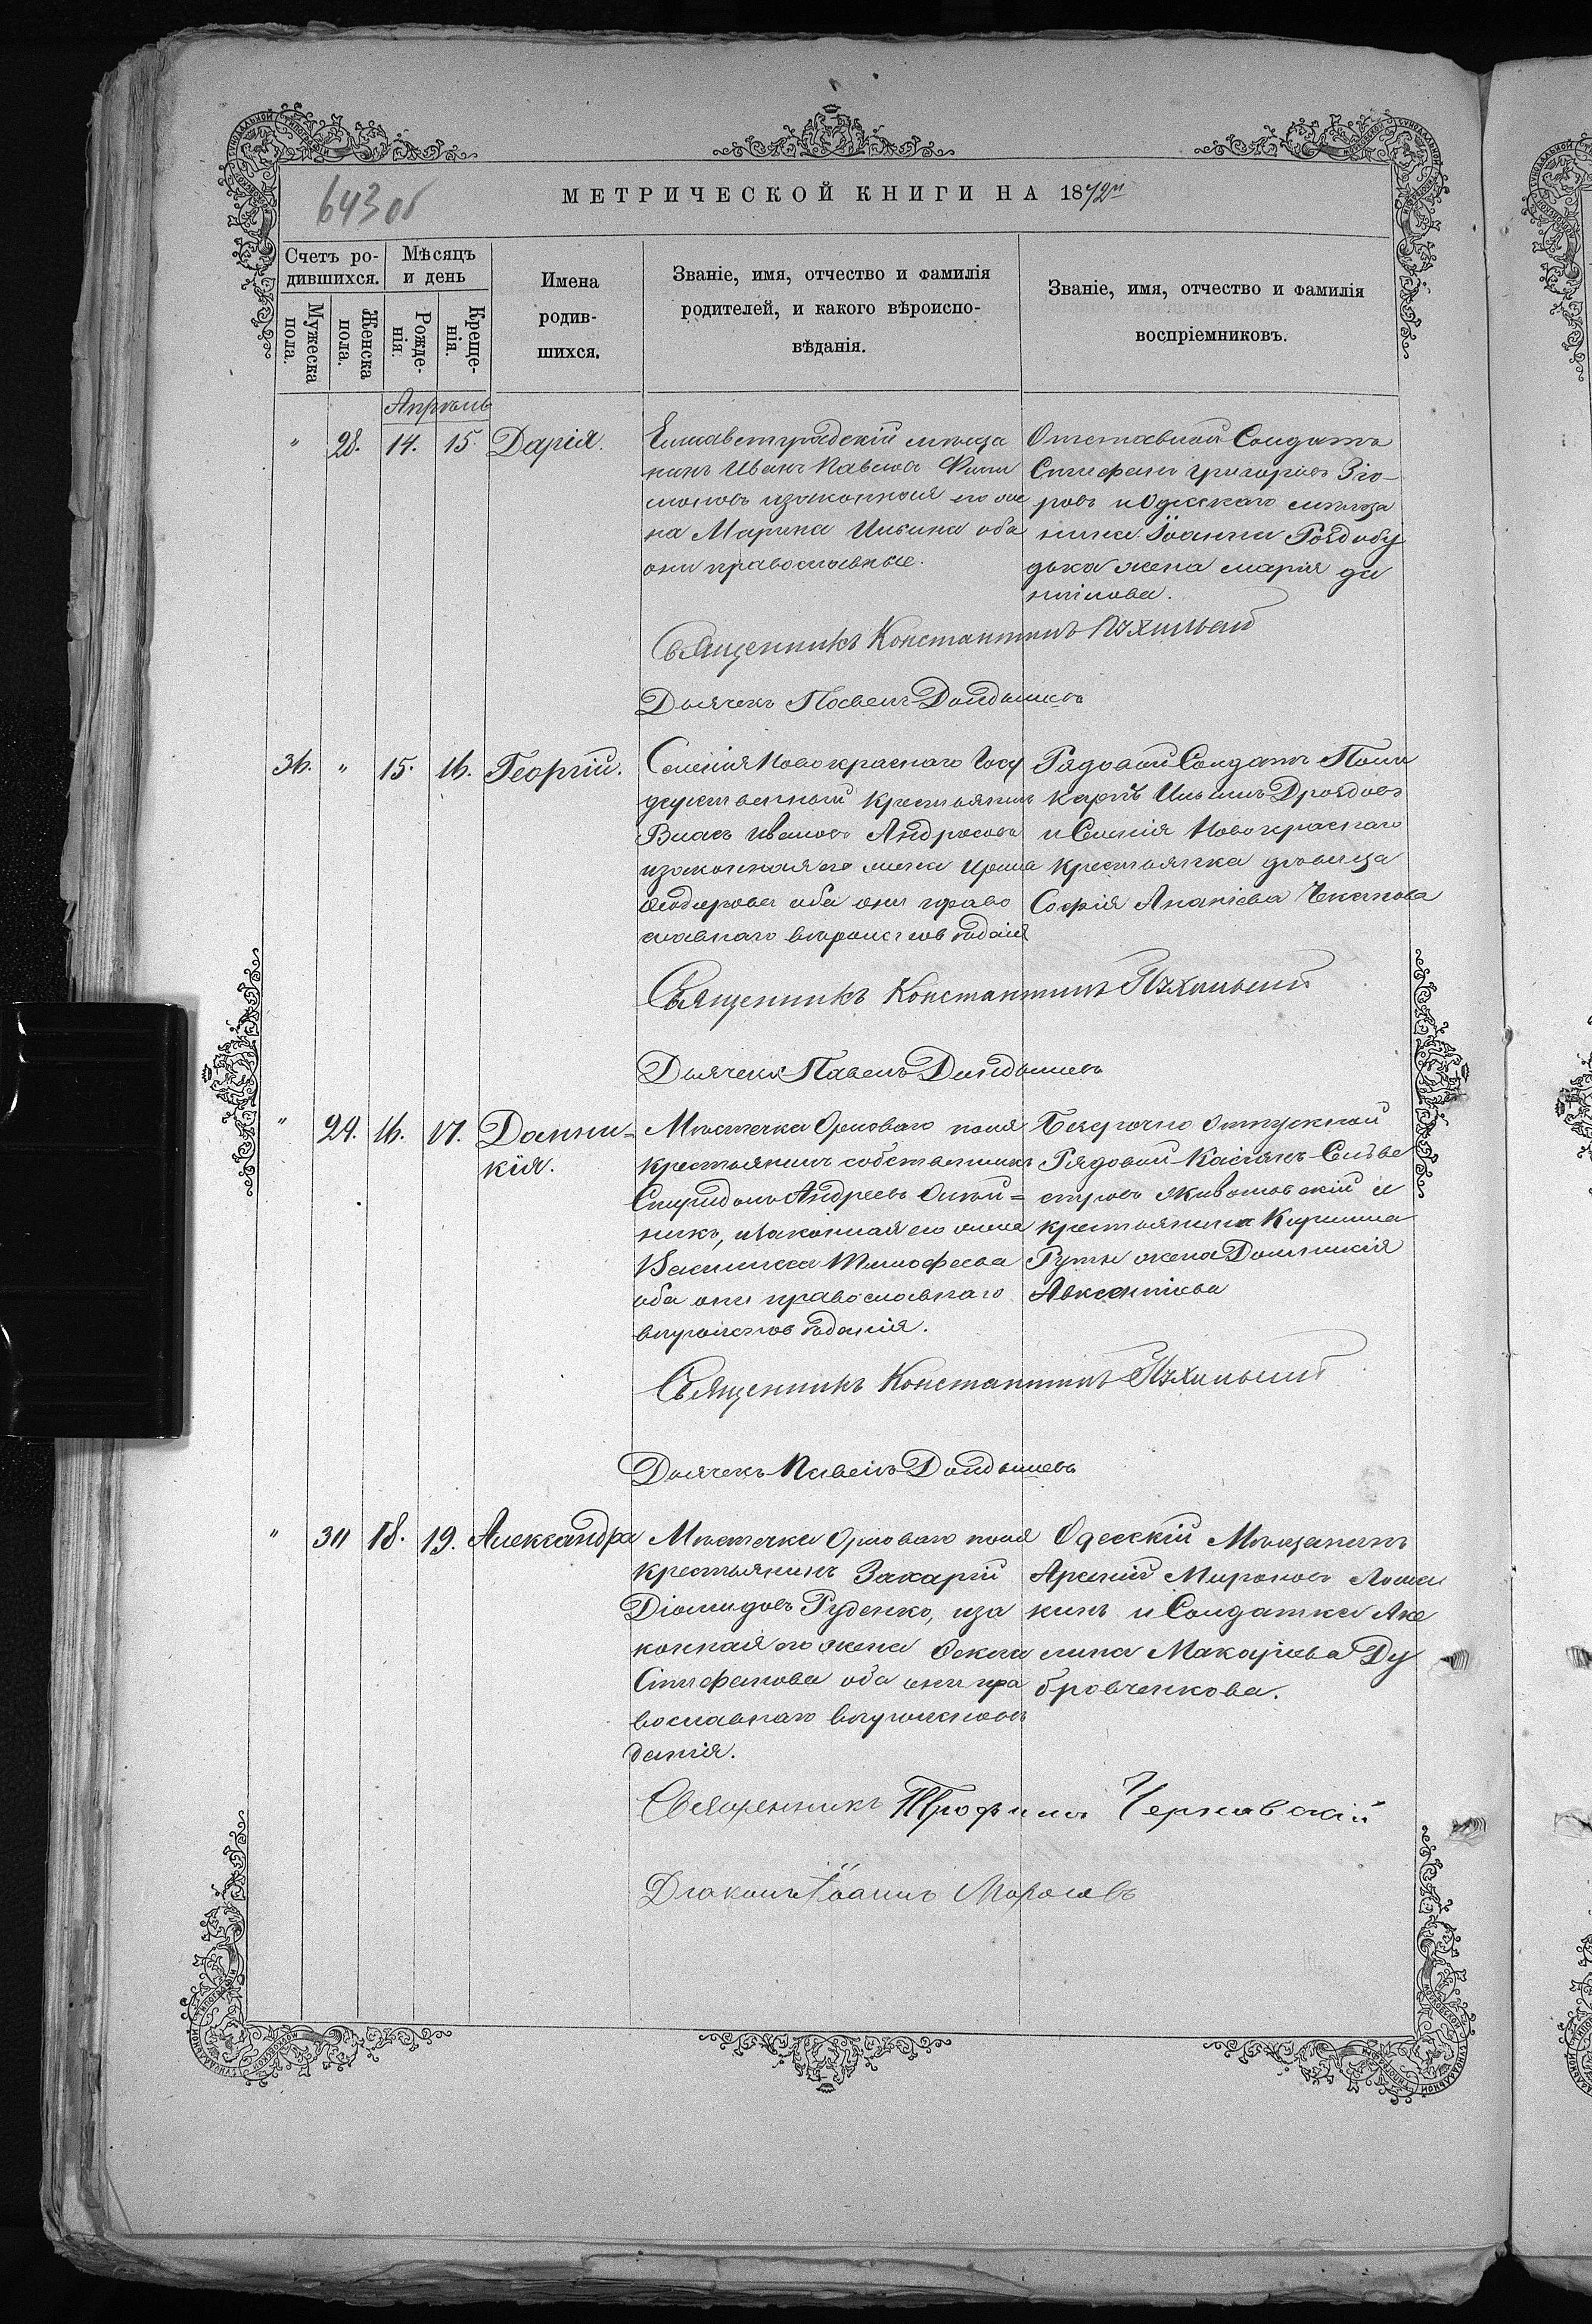 643 об
МЕТРИЧЕСКОЙ КНИГИ НА 1872й
Счетъ ро-
дившихся.
Мѣсяцъ
и день
Мужеска
пола.
Женска
пола.
Рожде-
нія.
Креще-
нія.
Имена
родив-
шихся.
Званіе, имя, отчество и фамилія
родителей, и какого вѣроиспо-
вѣданія.
Званіе, имя, отчество и фамилія
воспріемниковъ.
Апрель
" 28. 14. 15. Дарія.
Елисаветградскій мѣща
нинъ Иванъ Павловъ Фили
моновъ изаконная его же
на Марина Ильина оба
они православные.
Отставной Солдатъ
Стефанъ Григоріевъ
ровъ и Одескаго мѣща
нина Іоанна
жена Марія Да
ніилова.
Священникъ Константинъ
Дьячекъ Павелъ
36. " 15. 16. Георгій.
Селенія Новокраснаго Госу
дарственный крестьянинъ
Власъ Ивановъ Андросовъ
изаконная его жена Ирина
Феодорова оба они право
славнаго вѣроисповѣданія
Рядовой Солдатъ Поли
карпъ Ильинъ Дроздовъ
и Селенія Новокраснаго
крестьянка дѣвица
Софія Ананіева Чеканова
Священникъ Константинъ
Дьячекъ Павелъ
" 29. 16. 17. Домни-
кія.
Мѣстечка Ороваго поля
крестьянинъ собственникъ
Спиридонъ Андреевъ Олій-
никъ, изаконная его жена
Василиса Тимофеева
оба они православнаго
вѣроисповѣданія.
Безсрочно отпускной
Рядовой Касіянъ Сильве
стровъ Живановскій и
крестьянина Кирилла
Руты жена Домникія
Авксентіева
Священникъ Константинъ
Дьячекъ Павелъ
" 30 18. 19. Александра
Мѣстечка Ороваго поля
крестьянинъ Захарій
Діомидовъ Руденко, иза
конная его жена Фекла
Стефанова оба они пра
вославнаго вѣроисповѣ
данія.
Одесскій Мѣщанинъ
Арсеній Мироновъ
кинъ и Солдатка Аке
лина Макаріева Ду
бровченкова.
Священникъ Трофимъ Чернавскій
Діаконъ Іоаннъ Морозовъ